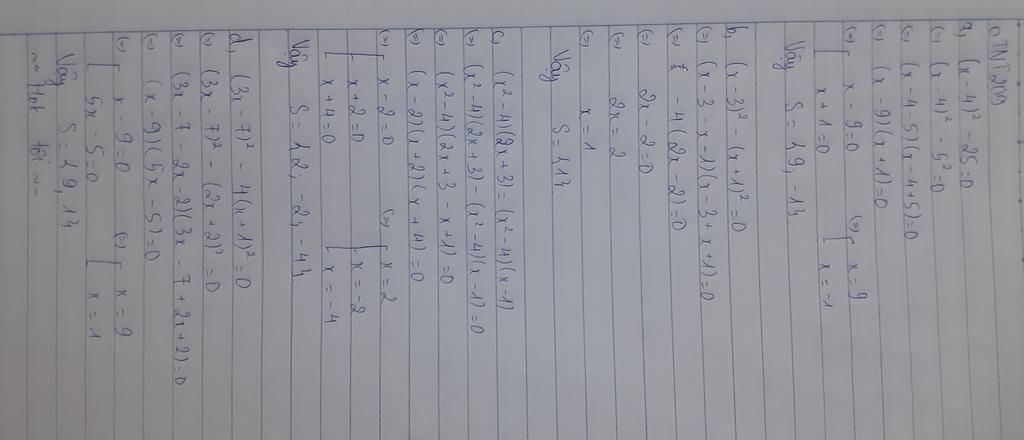 OTNT 209
a, (x-4)² - 25 = 0
(=) (x-4)² - 5² = 0
(=) (x-4-5)(x-4+5)=0
(=) (x-9)(x+1)=0
(=) [ x-9=0 (=) [ x=9
x+1=0 x=-1
Vậy S={9,-1}
b, (x-3)² - (x+1)² = 0
(=) (x-3-x-1)(x-3+x+1)=0
(=) -4(2x-2)=0
(=) 2x-2=0
(=) 2x=2
(=) x=1
Vậy S={1}
c, (x²-4)(2x+3)=(x²-4)(x-1)
(=) (x²-4)(2x+3)-(x²-4)(x-1)=0
(=) (x²-4)(2x+3-x+1)=0
(=) (x-2)(x+2)(x+4)=0
(=) [ x-2=0 (=) [ x=2
x+2=0 x=-2
x+4=0 x=-4
Vậy S={2;-2;-4}
d, (3x-7)² - 4(x+1)² = 0
(=) (3x-7)² - (2x+2)² = 0
(=) (3x-7-2x-2)(3x-7+2x+2)=0
(=) (x-9)(5x-5)=0
(=) [ x-9=0 (=) [ x=9
5x-5=0 x=1
Vậy S={9,1}
~~ Hot tới ~~